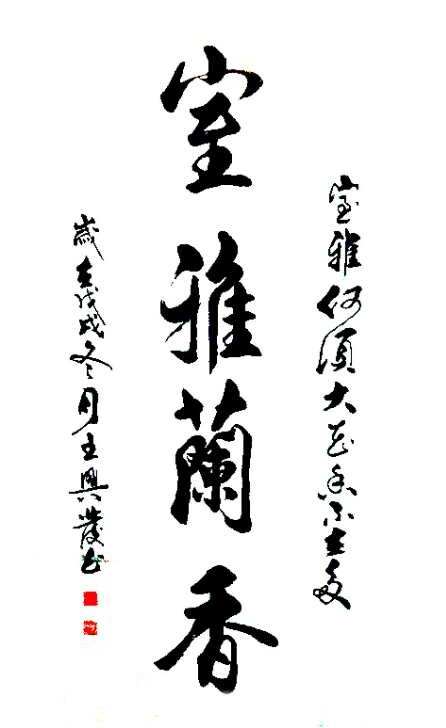 室雅何須大花香不在多
室雅蘭香
歲在戊戌冬月王興發書